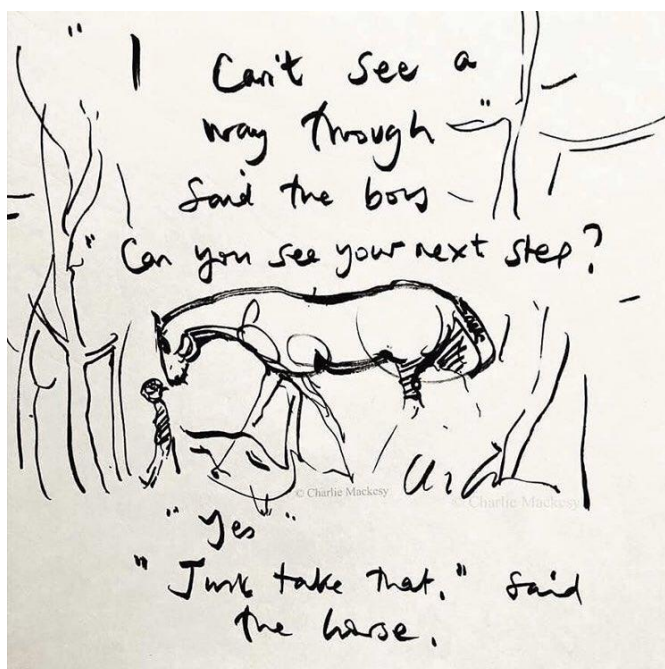 " I Can't see a
way through "
said the boy
" Can you see your next step?
© Charlie Mackesy
© Charlie Mackesy
" Yes "
" Just take that. " said
the horse.